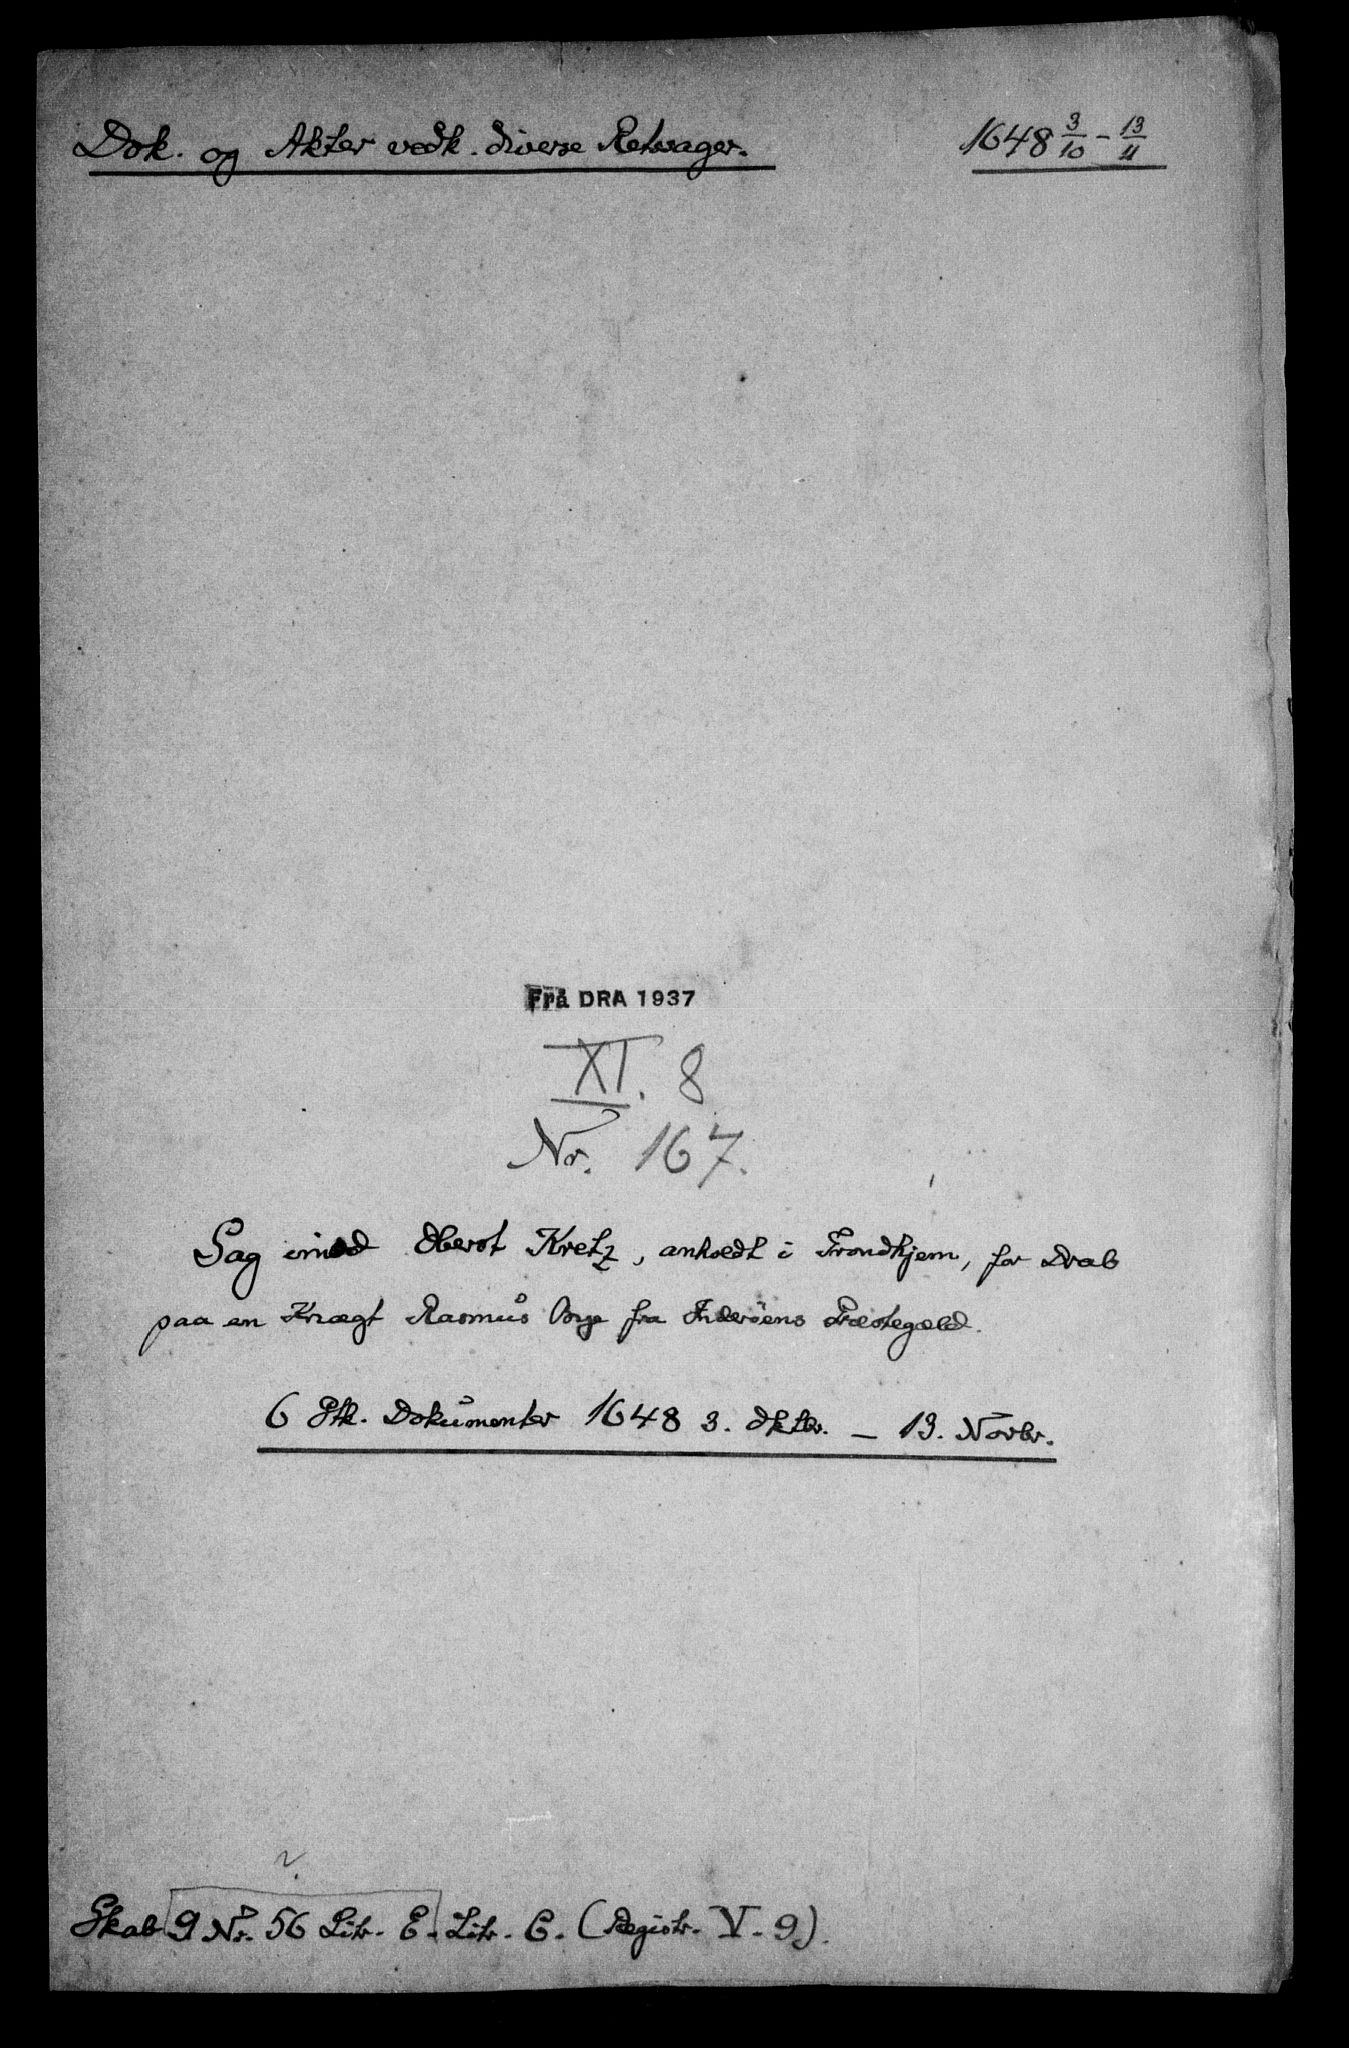 Dok. og Akter vedk. diverse Retssager.
1648 3/10 - 13/11
Frå DRA 1937
XI. 8
Nr. 167.
Sag imod Oberst Kretz, anholdt i Trondhjem, for Drab
paa en Knægt Rasmus fra Inderöens Præstegæld.
6 Stk. Dokumenter 1648 3. Oktbr. - 13. Novbr.
Skab 9 Nr. 56 Litr. E. Litr. C. (Registr. V. 9).